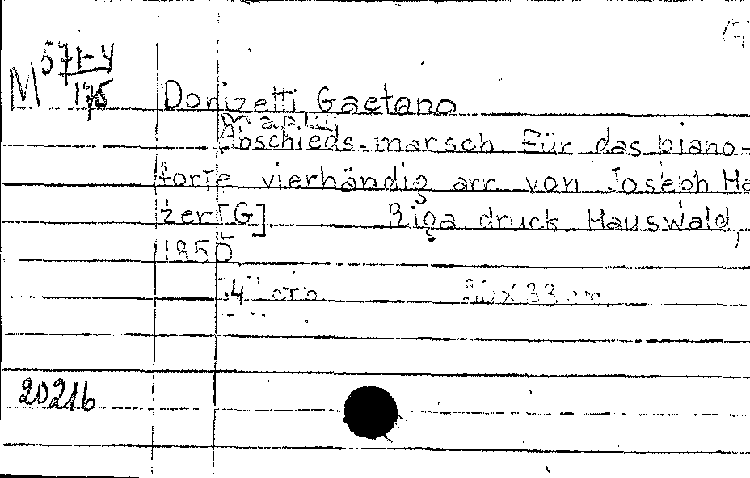 M 571-4
175
Donizetti Gaetano
Abschieds-marsch Für das piano-
forte vierhändig arr von Joseph Ha
zer [G] Riga druck Hauswald,
1850
4 стр. 33 cm
20216